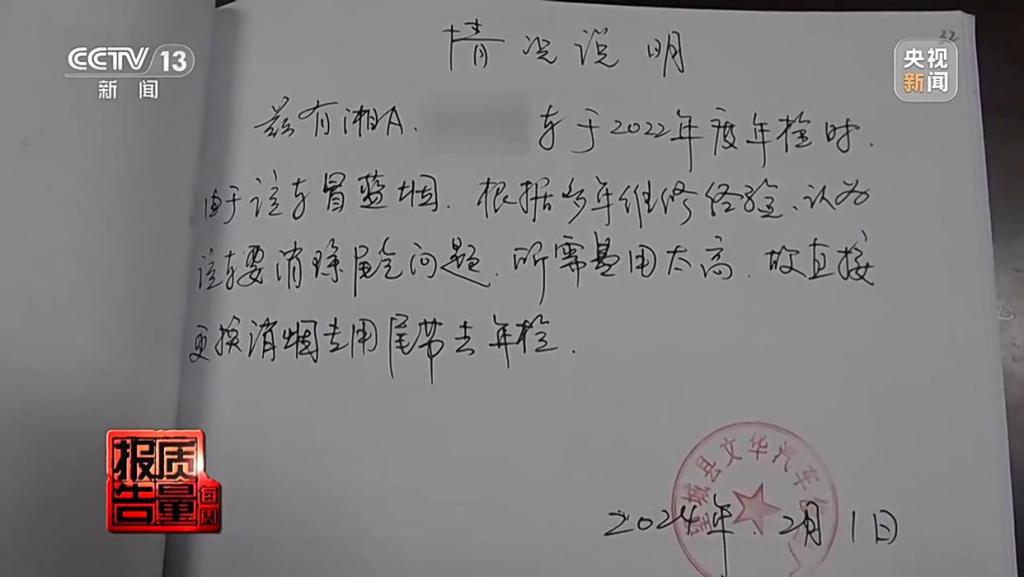 CCTV 13
新闻
央视
新闻
22
情况说明
兹有湘A. 车于2022年度年检时.
由于该车冒蓝烟. 根据多年维修经验、认为
该车要消除尾气问题. 所需费用太高. 故直接
更换消烟专用尾带去年检.
城县文华汽车
2024年.2月1日
每周
质量
报告